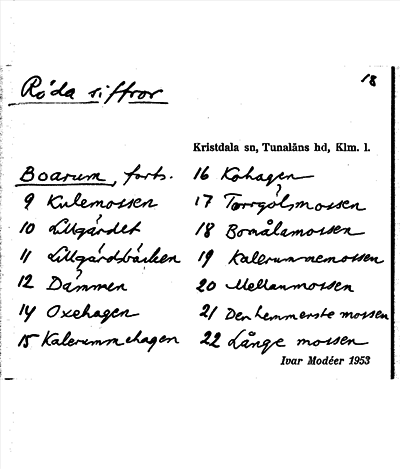 Röda siffror
18
Kristdala sn, Tunaläns hd, Klm. l.
Boarum, forts.
9 Kulemossen
10 Lillgärdet
11 Lillgärdsbäcken
12 Dämmen
14 Oxehagen
15 Kalerummehagen
16 Kohagen
17 Torrgölsmossen
18 Bomålamossen
19 Kalerummemossen
20 Mellanmossen
21 Den hemmerste mossen
22 Långe mossen
Ivar Modéer 1953